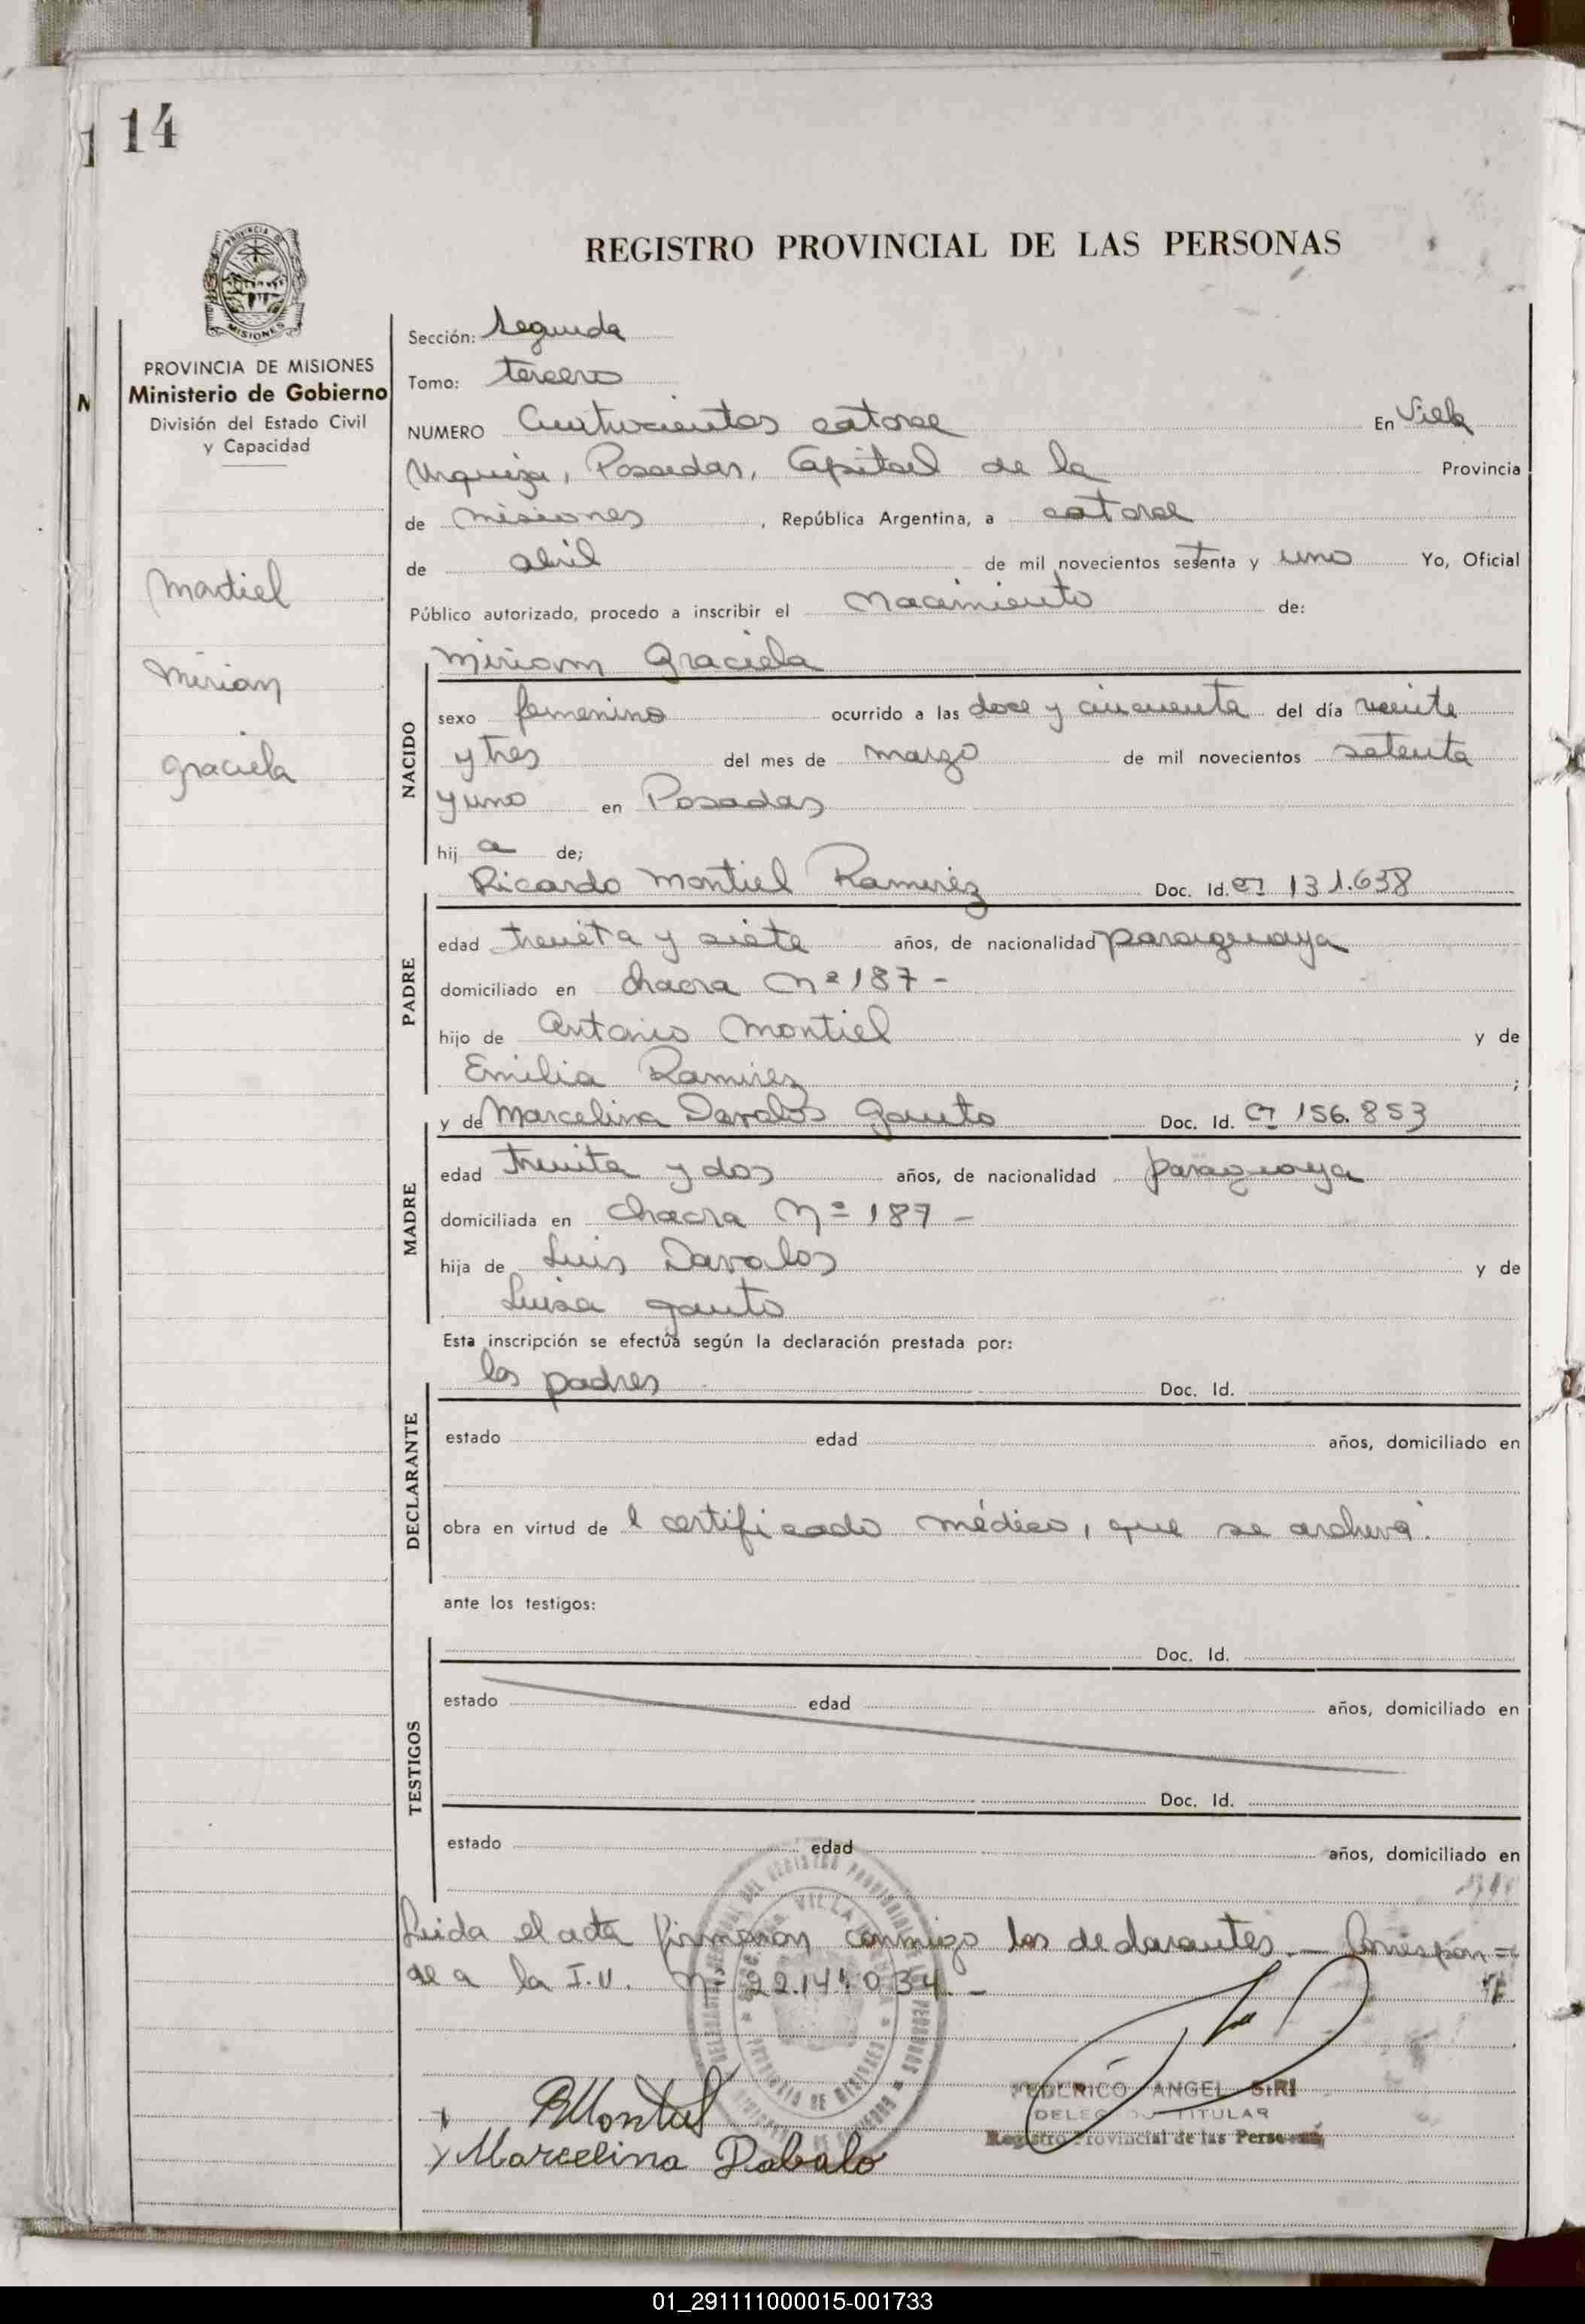 14
1
REGISTRO PROVINCIAL DE LAS PERSONAS
PROVINCIA DE
MISIONES
PROVINCIA DE MISIONES
Ministerio de Gobierno
División del Estado Civil
y Capacidad
N
Montiel
Mirian
Graciela
Sección: Segunda
Tomo: tercero
NUMERO Cuatrocientos catorce En Villa
Urquiza, Posadas, Capital de la Provincia
de Misiones, República Argentina, a catorce
de abril de mil novecientos setenta y uno Yo, Oficial
Público autorizado, procedo a inscribir el Nacimiento de:
Miriam Graciela
NACIDO
sexo femenino ocurrido a las doce y cincuenta del día veinte
y tres del mes de marzo de mil novecientos setenta
y uno en Posadas
hij a de;
Ricardo Montiel Ramirez Doc. Id. CI 131.638
PADRE
edad treinta y siete años, de nacionalidad paraguaya
domiciliado en chacra Nº 187 -
hijo de Antonio Montiel y de
Emilia Ramirez ;
y de Marcelina Davalos Gauto Doc. Id. CI 156.853
MADRE
edad treinta y dos años, de nacionalidad paraguaya
domiciliada en chacra Nº 187 -
hija de Luis Davalos y de
Luisa Gauto
Esta inscripción se efectúa según la declaración prestada por:
los padres Doc. Id.
DECLARANTE
estado edad años, domiciliado en
obra en virtud de l certificado médico, que se archiva.
ante los testigos:
Doc. Id.
TESTIGOS
estado edad años, domiciliado en
Doc. Id.
estado edad años, domiciliado en
Leida el acta firmaron conmigo los declarantes. — Correspon=
de a la I.U. Nº 22.141.034. -
RMontiel
Marcelina Dabalo
FEDERICO ANGEL SIRI
DELEGADO TITULAR
Registro Provincial de las Personas
01_291111000015-001733